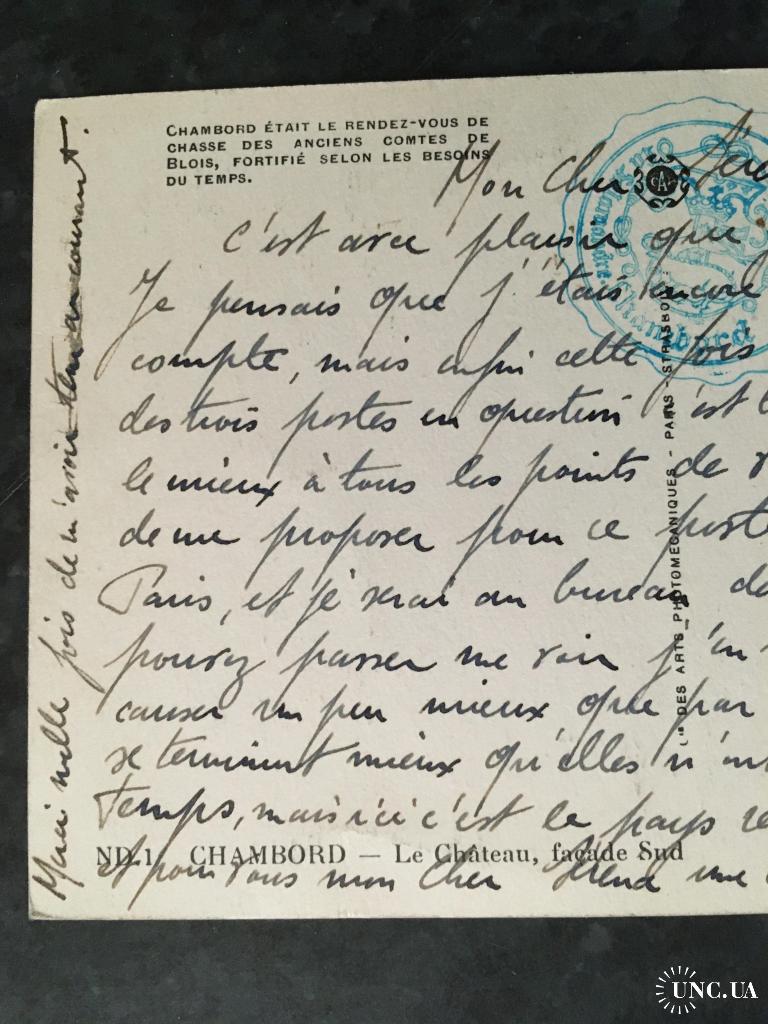 CHAMBORD ÉTAIT LE RENDEZ-VOUS DE
CHASSE DES ANCIENS COMTES DE
BLOIS, FORTIFIÉ SELON LES BESOINS
DU TEMPS.
Mon Cher
c'est avec plaisir que
Je pensais que j'étais encore
compte, mais enfin cette fois
des trois postes en question c'est
le mieux à tous les points de
de me proposer pour ce poste
Paris, et je serai au bureau
pourrez passer me voir
causer un peu mieux que par
se terminent mieux qu'elles n'ont
Temps, mais ici c'est le pays
et pour vous mon Cher
ND. 1. CHAMBORD — Le Château, façade Sud
Merci mille fois de m'avoir tenu au courant.
DES ARTS PHOTOMÉCANIQUES - PARIS - STRASBO
Chambord
UNC.UA